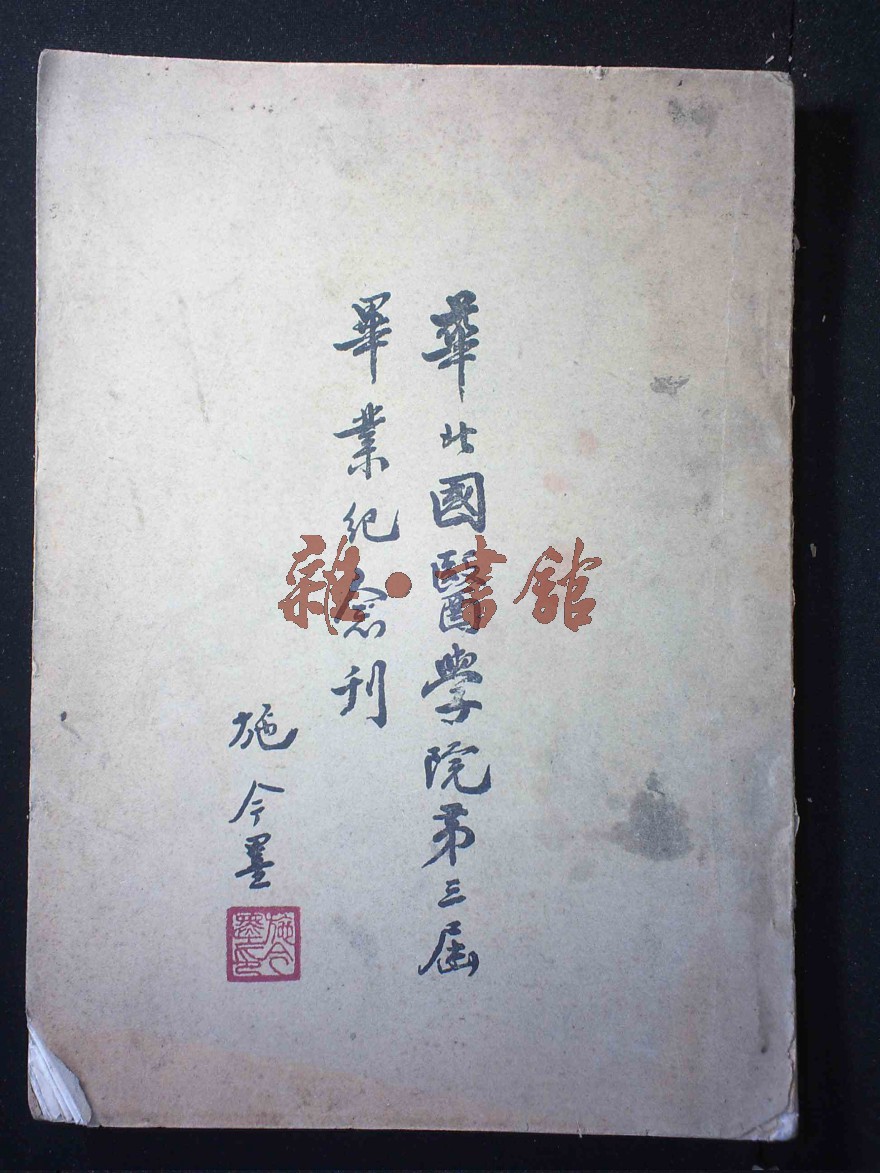 華北國醫學院第三屆
畢業紀念刊
施今墨
施今墨印
雜·書館